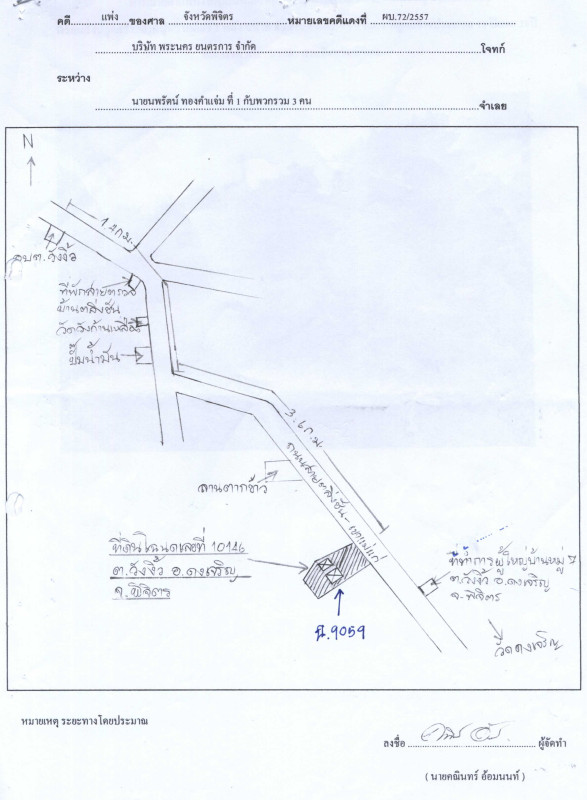 คดี แพ่ง ของศาล จังหวัดพิจิตร หมายเลขคดีแดงที่ ผบ.72/2557
บริษัท พระนคร ยนตรการ จำกัด โจทก์
ระหว่าง
นายนพรัตน์ ทองคำแจ่ม ที่ 1 กับพวกรวม 3 คน จำเลย
N
1.4 ก.ม.
อบต.วังงิ้ว
ที่พักสายตรวจ
บ้านตลิ่งชัน
วัดวังก้านเหลือง
ปั๊มน้ำมัน
3.6 ก.ม.
ถนนสายตลิ่งชัน-เขาแม่แก่
ลานตากข้าว
ที่ดินโฉนดเลขที่ 10146
ต.วังงิ้ว อ.ดงเจริญ
จ.พิจิตร
ที่ทำการผู้ใหญ่บ้านหมู่ 7
ต.วังงิ้ว อ.ดงเจริญ
จ.พิจิตร
น.9059
วัดดงเจริญ
หมายเหตุ ระยะทางโดยประมาณ
ลงชื่อ ผู้จัดทำ
( นายคณินทร์ อ้อมนนท์ )